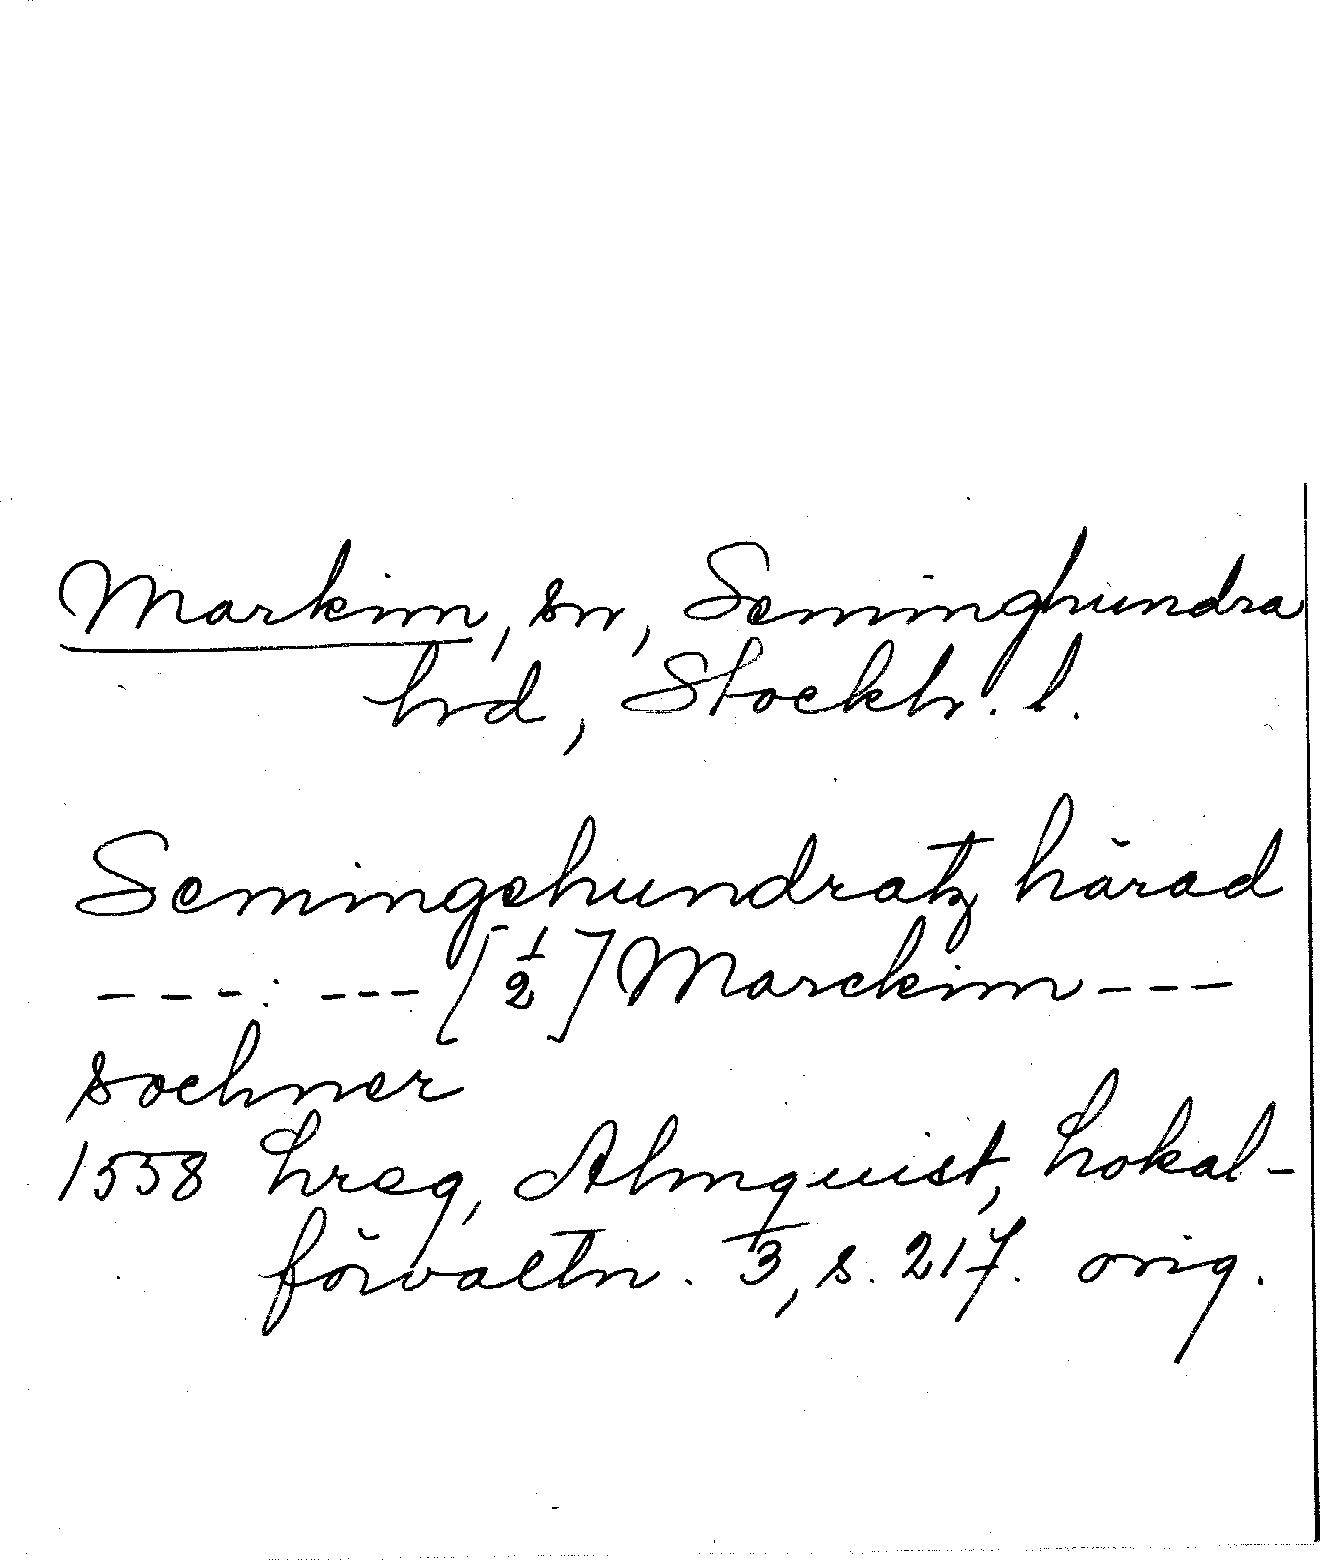 Markim, sn, Seminghundra
hrd, Stockh. l.
Semingehundratz härad
---: --- [½] Marckim ---
sochner
1558 Lreg, Almquist, Lokal-
förvaltn. 3, s. 217. orig.